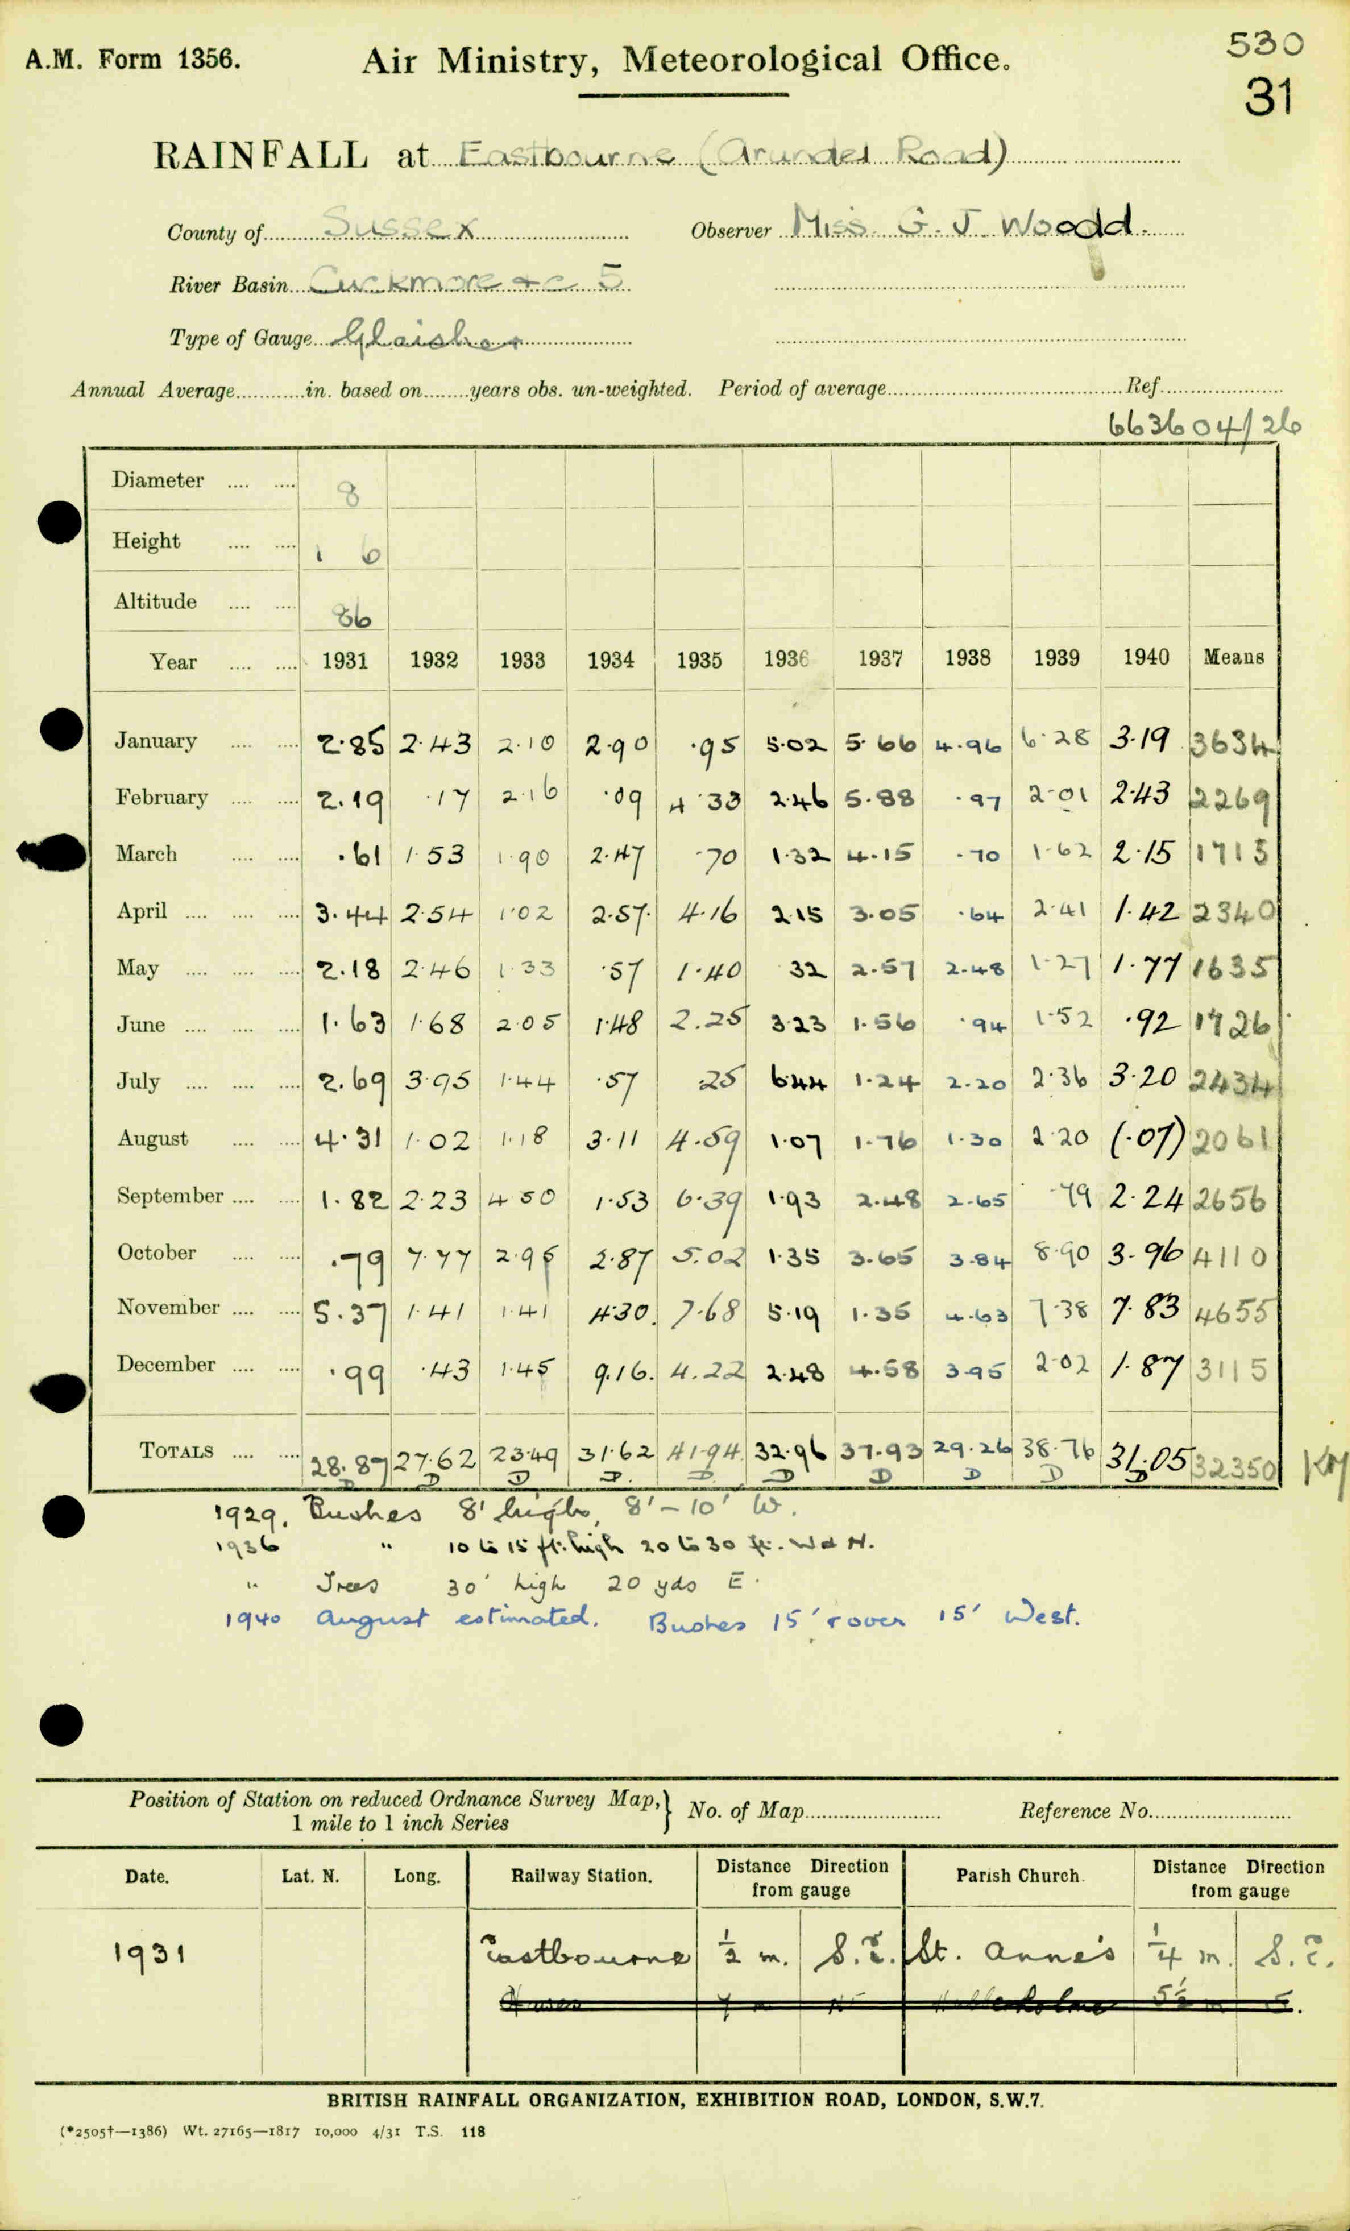 A.M. Form 1356. Air Ministry, Meteorological Office. 530
31
RAINFALL at Eastbourne (Arundel Road)
County of Sussex Observer Miss G. J. Woodd.
River Basin Cuckmere &c 5
Type of Gauge Glaisher
Annual Average in. based on years obs. un-weighted. Period of average Ref.
663604/26
Diameter 8
Height 1 6
Altitude 86
Year 1931 1932 1933 1934 1935 1936 1937 1938 1939 1940 Means
January 2.85 2.43 2.10 2.90 .95 5.02 5.66 4.96 6.28 3.19 3634
February 2.19 .17 2.16 .09 4.33 2.46 5.88 .97 2.01 2.43 2269
March .61 1.53 1.90 2.47 .70 1.32 4.15 .70 1.62 2.15 1715
April 3.44 2.54 1.02 2.57 4.16 2.15 3.05 .64 2.41 1.42 2340
May 2.18 2.46 1.33 .57 1.40 .32 2.57 2.48 1.27 1.77 1635
June 1.63 1.68 2.05 1.48 2.25 3.23 1.56 .94 1.52 .92 1726
July 2.69 3.95 1.44 .57 .25 6.44 1.24 2.20 2.36 3.20 2434
August 4.31 1.02 1.18 3.11 4.59 1.07 1.76 1.30 2.20 (.07) 2061
September 1.82 2.23 4.50 1.53 6.39 1.93 2.48 2.65 .79 2.24 2656
October .79 7.77 2.95 2.87 5.02 1.35 3.65 3.84 8.90 3.96 4110
November 5.37 1.41 1.41 4.30 7.68 5.19 1.35 4.63 7.38 7.83 4655
December .99 .43 1.45 9.16 4.22 2.48 4.58 3.95 2.02 1.87 3115
TOTALS 28.87 27.62 23.49 31.62 41.94 32.96 37.93 29.26 38.76 31.05 32350
D D D D D D D D D D
1929. Bushes 8' high, 8' – 10' W.
1936 " 10 to 15 ft. high 20 to 30 ft. W & N.
" Trees 30' high 20 yds E.
1940 August estimated. Bushes 15' & over 15' West.
Position of Station on reduced Ordnance Survey Map, 1 mile to 1 inch Series } No. of Map Reference No.
Date. Lat. N. Long. Railway Station. Distance Direction from gauge Parish Church. Distance Direction from gauge
1931 Eastbourne ½ m. S.E. St. Anne's ¼ m. S.E.
BRITISH RAINFALL ORGANIZATION, EXHIBITION ROAD, LONDON, S.W.7.
(*2505†—1386) Wt. 27165—1817 10,000 4/31 T.S. 118